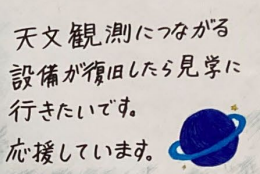 天文観測につながる
設備が復旧したら見学に
行きたいです。
応援しています。